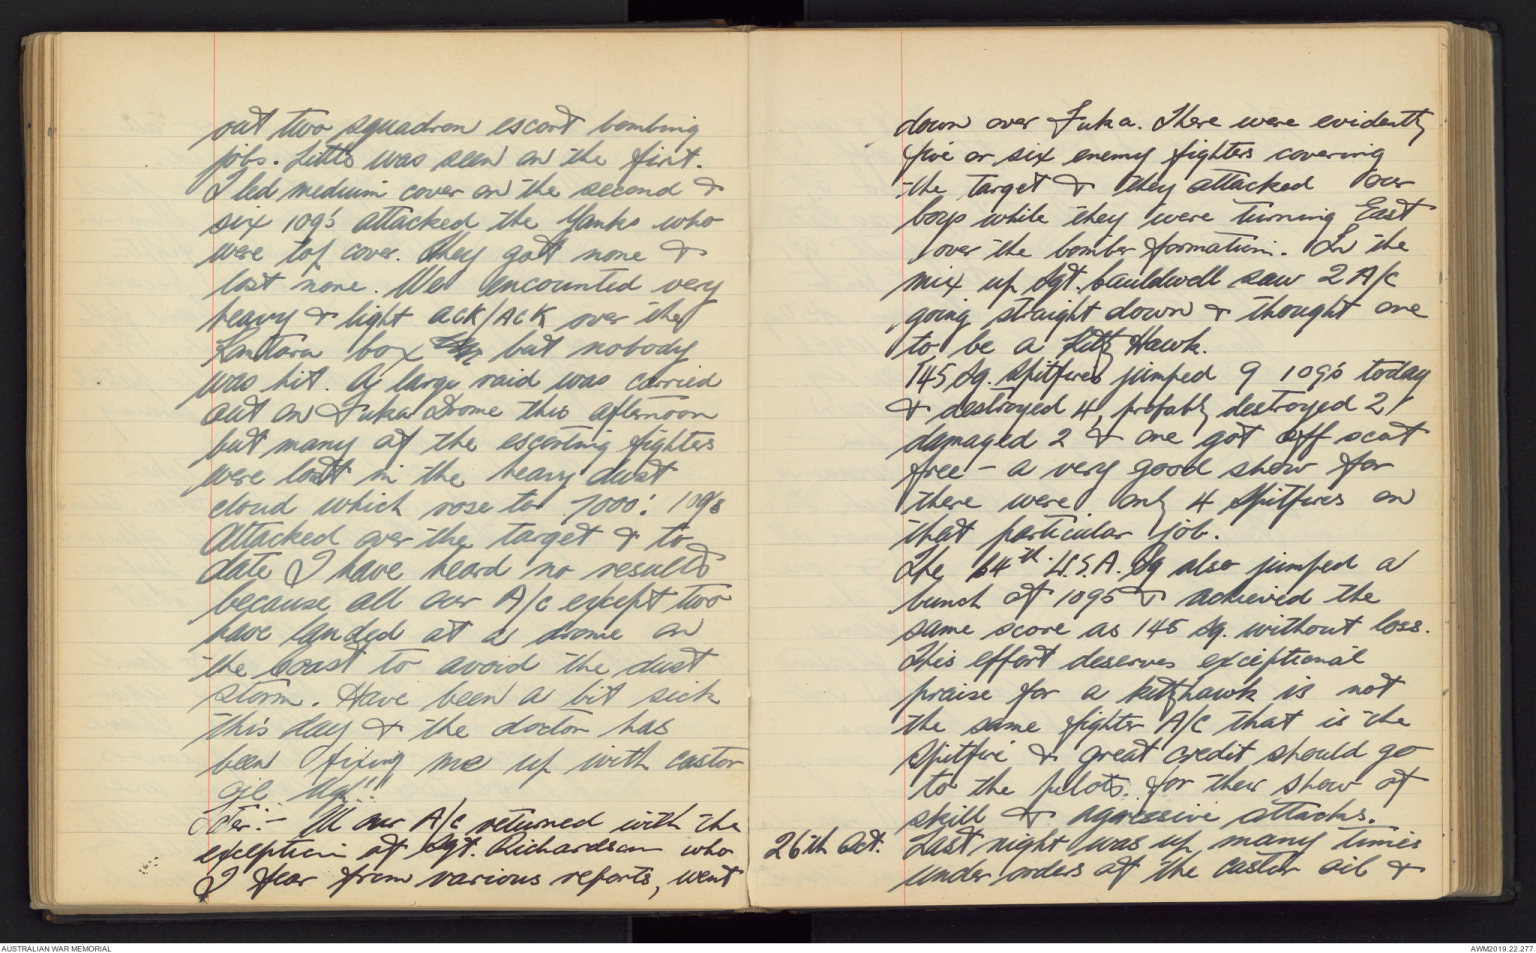 out two squadron escort bombing
jobs. Little was seen on the first.
I led medium cover on the second &
six 109's attacked the Yanks who
were top cover. They got none &
lost none. We encounted very
heavy & light ACK/ACK over the
box but nobody
was hit. A large raid was carried
out on Fuka Drome this afternoon
but many of the escorting fighters
were lost in the heavy dust
cloud which rose to 7000'. 109's
Attacked over the target & to
date I have heard no results
because all our A/c except two
have landed at a drome on
the coast to avoid the dust
storm. Have been a bit sick
this day & the doctor has
been fixing me up with castor
oil Ugh!!
Later:- All our A/c returned with the
exception of Sgt. Richardson who
I fear from various reports, went
down over Fuka. There were evidently
five or six enemy fighters covering
the target & they attacked our
boys while they were turning East
over the bomber formation. In the
mix up Sgt. Cauldwell saw 2 A/c
going straight down & thought one
to be a Kitty Hawk.
145 Sq. Spitfires jumped 9 109's today
& destroyed 4, probably destroyed 2,
damaged 2 & one got off scot
free - a very good show for
there were only 4 Spitfires on
that particular job.
The 64th U.S.A. Sq also jumped a
bunch of 109s & achieved the
same score as 145 Sq. without loss.
This effort deserves exceptional
praise for a kittyhawk is not
the same fighter A/c that is the
Spitfire & great credit should go
to the pilots for their show of
skill & agressive attacks.
26th Oct. Last night was up many times
under orders of the castor oil &
AUSTRALIAN WAR MEMORIAL
AWM2019.22.277